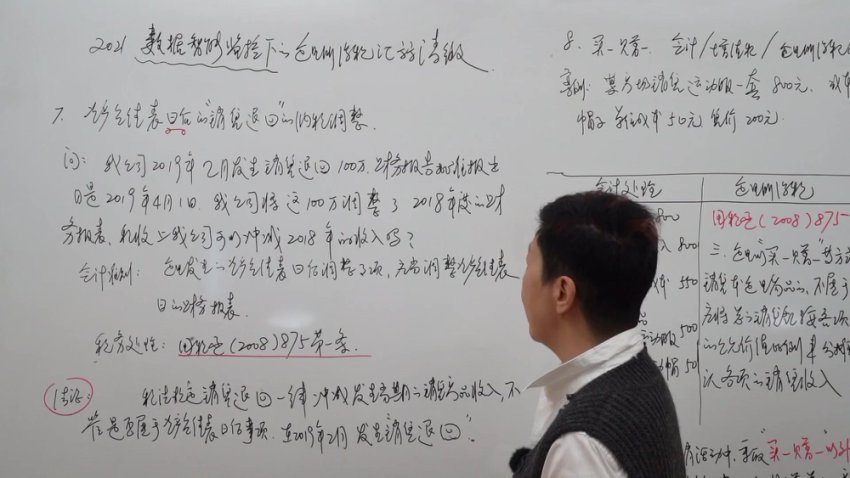 2021 数据智能监控下的企业所得税汇算清缴
7. 资产负债表日后的"销售退回"的纳税调整.
问: 我公司2019年2月发生销售退回100万.财务报告批准报出
日是2019年4月1日.我公司将这100万调整了2018年度的财
务报表,税收上我公司可以冲减2018年的收入吗?
会计准则: 企业发生的资产负债表日后调整事项,应当调整资产负债表
日的财务报表.
税务处理: 国税函(2008)875第一条.
结论: 税法规定销售退回一律冲减发生当期的销售商品收入,不
管是否属于资产负债表日后事项.在2019年2月发生销售退回".
8. 买一赠一. 会计/增值税/企业所得税
案例: 某商场销售运动服一套800元,成本
帽子 单位成本50元售价200元.
会计处理 企业所得税
800 国税函(2008)875
入 800 三.企业以"买一赠一"等方式
成本 550 销售本企业商品的,不属于
品 应将总的销售金额按各项
500 的公允价值的比例来分摊
帽50 认各项的销售收入
活动中,采取"买一赠一"的